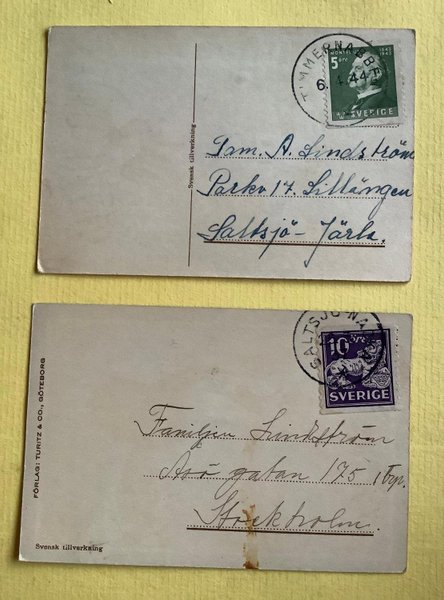 TIMMERNABBEN
6. 1. 44
MONTELIUS
1843
1943
5
öre
SVERIGE
Svensk tillverkning
Fam. A. Lindström
Parkv 17. Lillängen
Saltsjö-Järla.
SALTSJÖ-NA
10 öre
SVERIGE
FÖRLAG: TURITZ & CO., GÖTEBORG
Familjen Lindström
Åsö gatan 175, 1 trp.
Stockholm.
Svensk tillverkning